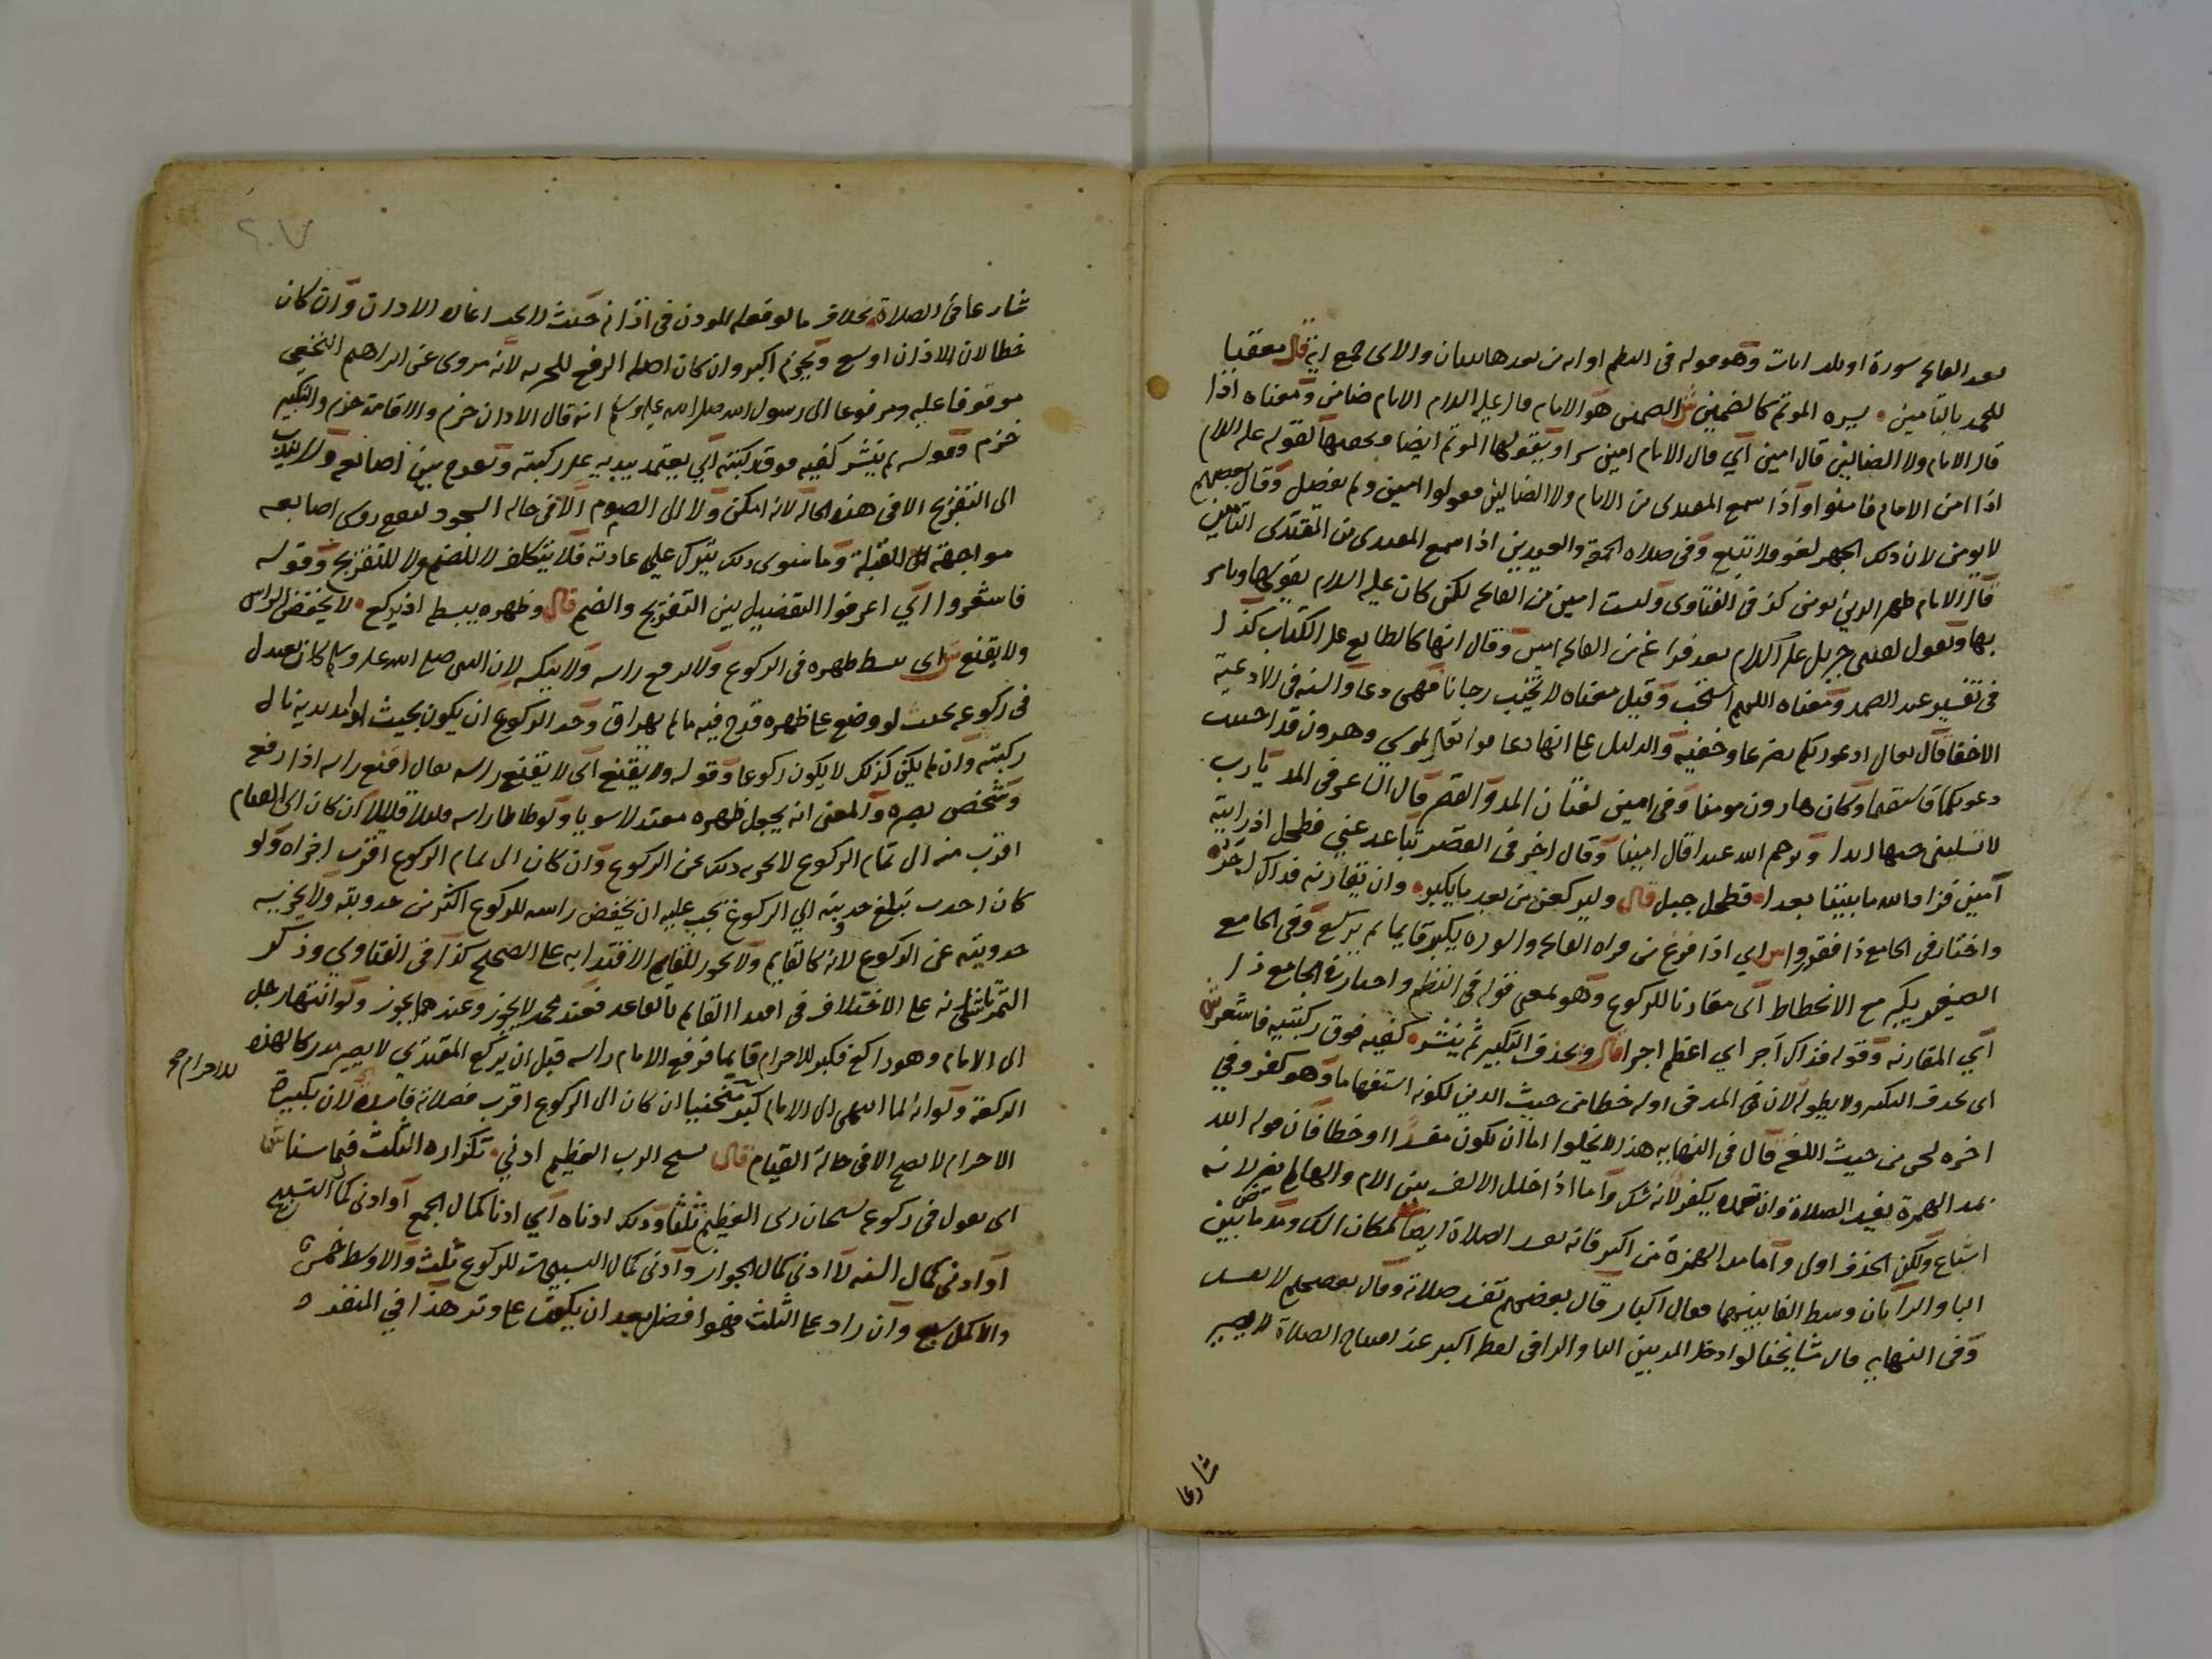 بعد الفاتحه سورة او ثلث ايات وهو قوله فى النظم او ايه من بعدها للبيان والاى جمع ايه قال معقبا
للحمد بالتامين يسره الموتم كالضمين ش الضمين هو الامام قال عليه السلام الامام ضامن ومعناه اذا
قال الامام ولا الضالين قال امين اي قال الامام امين سرا ويقولها الموتم ايضا ويخفيها لقوله عليه السلام
اذا امن الامام فامنوا واذا سمع المقتدى من الامام ولا الضالين فقولوا امين ولم يفصل وقال بعضهم
لا يومن لان ذلك الجهر لغو ولا يتبع وفى صلاه الجمعة والعيدين اذا سمع المقتدى من المقتدى التامين
قال الامام ظهير الدين يومن كذا فى الفتاوى وليست امين من الفاتحه لكن كان عليه السلام يقولها ويامر
بها ويقول لقننى جبريل عليه السلام بعد فراغى من الفاتحه امين وقال انها كالطابع على الكتاب كذا
فى تفسير عبد الصمد ومعناه اللهم استجب وقيل معناه لا تخيب رجانا فهى دعا والسنه فى الادعية
الاخفا قال تعالى ادعو ربكم تضرعا وخفية والدليل على انها دعا قوله تعالى لموسي وهرون قد اجيبت
دعوتكما فاستقيما وكان هارون مومنا وفى امين لغتان المد والقصر قال الشاعر فى المد يا رب
لا تسلبنى حبها ابدا ويرحم الله عبدا قال امينا وقال اخر فى القصر تباعد عني فطحل اذ رايته
آمين فزاد الله ما بيننا بعدا فطحل جبل قال وليركعن من بعد ما يكبر وان يقارنه فذاك اجر
واختار فى الجامع ذا فقرروا ش اي اذا فرغ من قراه الفاتحه والسوره يكبر قايما ثم يركع وفى الجامع
الصغير يكبر مع الانحطاط اى مقارنا للركوع وهو لمعنى قوله فى النظم واختار فى الجامع ذا
اي المقارنه وقوله فذاك آجر اي اعظم اجرا قال ويحذف التكبير ثم ينشر كفيه فوق ركبتيه فاشعروا ش
اى يحذف التكبير ولا يطوله لان المد فى اوله خطا من حيث الدين لكونه استفهاما وهو كفر وفي
اخره لحن من حيث اللغه قال فى النهايه هذا لا يخلوا اما ان يكون مفسدا او خطا فان قوله الله
بمد الهمزة يفسد الصلاة وان تعمده يكفر لانه شك واما اذا خلل الالف بين اللام والهاء لا يضر لانه
اشباع ولكن الحذف اولى واما مد الهمزة من اكبر فانه يفسد الصلاة ايضا لمكان الشك ومد ما بين
البا والرا بان وسط الفا بينهما فقال اكبار قال بعضهم تفسد صلاته وقال بعضهم لا تفسد
وفى النهايه قال مشايخنا لو ادخل المد بين البا والرا فى لفظه اكبر عند افتتاح الصلاة لا يصير
شارعا
شارعا فى الصلاة بخلاف ما لو فعله الموذن فى اذانه حيث لا يجب اعادة الاذان وان كان
خطا لان الاذان اوسع ويجزم اكبر وان كان اصله الرفع للخبريه لانه مروى عن ابراهيم النخعي
موقوفا عليه ومرفوعا الى رسول الله صلى الله عليه وسلم انه قال الاذان جزم والاقامة جزم والتكبير
جزم وقوله ثم ينشر كفيه فوق ركبتيه اي يعتمد بيديه على ركبتيه ويفرج بين اصابعه ولا يندب
الى التفريج الا فى هذه الحاله لانه امكن ولا الى الضم الا فى حاله السجود لتقع روس اصابعه
مواجهة الى القبلة وما سوى ذلك يترك على عادته فلا يتكلف لا للضم ولا للتفريج وقوله
فاشعروا اي اعرفوا التفضيل بين التفريج والضم قال وظهره يبسط اذ يركع لا يخفض الراس
ولا يقنع ش اى يبسط ظهره فى الركوع ولا يرفع راسه ولا ينكسه لان النبى صلى الله عليه وسلم كان يعتدل
فى ركوعه بحيث لو وضع على ظهره قدح فيه ما لم يهراق وحد الركوع ان يكون بحيث لو مد يديه نال
ركبتيه وان لم يكن كذلك لا يكون ركوعا وقوله ولا يقنع اى لا يقنع راسه يقال اقنع راسه اذا رفع
وشخص بصره والمعنى انه يجعل ظهره معتدلا سويا ولو طاطا راسه قليلا قليلا ان كان الى القيام
اقرب منه الى تمام الركوع لا يجزيه ذلك عن الركوع وان كان الى تمام الركوع اقرب اجزاه ولو
كان احدب تبلغ حدبته الي الركوع يجب عليه ان يخفض راسه للركوع اكثر من حدوبته ولا يجزيه
حدوبته عن الركوع لانه كالقايم ولا يجوز للقايم الاقتدا به على الصحيح كذا فى الفتاوي وذكر
التمرتاشى انه على الاختلاف فى اقتدا القايم بالقاعد فعند محمد لا يجوز وعندهما يجوز ولو انتهى رجل
الى الامام وهو راكع فكبر للاحرام قايما فرفع الامام راسه قبل ان يركع المقتدي لا يصير مدركا لهذه
للاحرام صح
الركعة ولو انه لما انتهى الى الامام كبر منحنيا ان كان الى الركوع اقرب فصلاته فاسدة لان تكبيرة
الاحرام لا تصح الا فى حالة القيام قال يسبح الرب العظيم ادني تكراره الثلث فيما سنا ش
اى يقول فى ركوعه سبحان ربى العظيم ثلثا وذلك ادناه اي ادنا كمال الجمع او ادنى كمال التسبيح
او ادنى كمال السنه لا ادنى كمال الجواز وادنى كمال التسبيحات للركوع ثلث والاوسط خمس
والاكمل سبع وان زاد على الثلث فهو افضل بعد ان يكون على وتر هذا في المنفرد